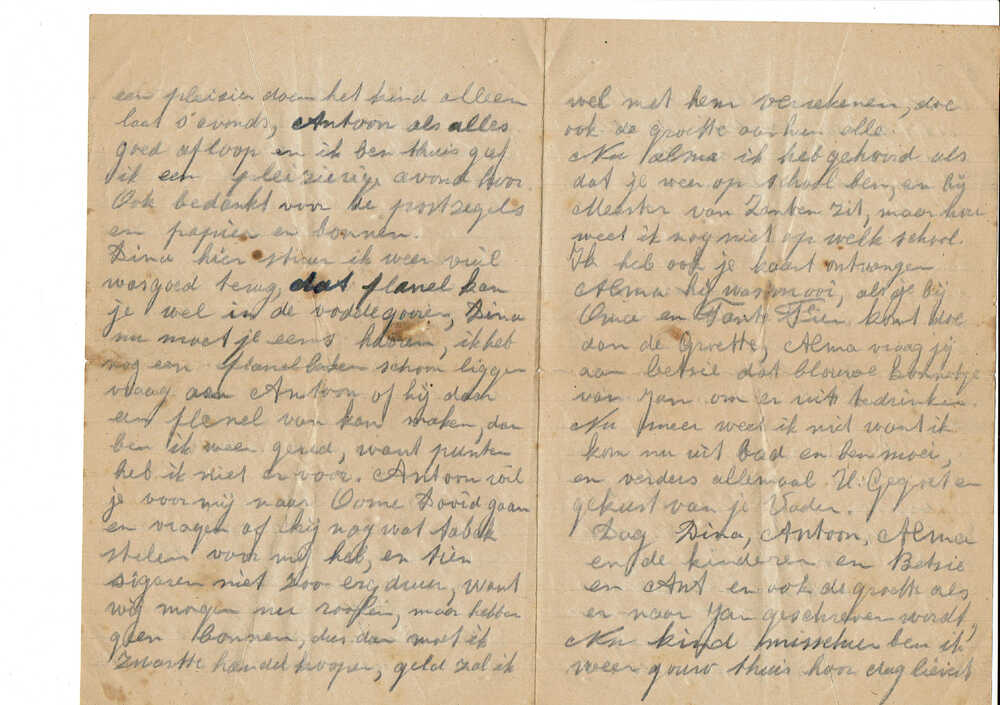 een pleisier doen het kind alleen
laat s'avonds, Antoon als alles
goed afloop en ik ben thuis gef
ik een pleizierige avond hoor.
Ook bedankt voor de postzegels
en papier en bonnen.
Dina hier stuur ik weer vuil
wasgoed terug, dat flanel kan
je wel in de vodde gooien, Dina
nu moet je eens hooren, ik heb
nog een flanel laken schoon liggen
vraag aan Antoon of hij daar
een flenel van kan maken, dan
ben ik weer gered, want punten
heb ik niet er voor. Antoon wil
je voor mij naar Oome David gaan
en vragen of hij nog wat tabak
stelen voor mij heb, en tien
sigaren niet zoo erg duur, want
wij morgen nu rooken, maar hebben
geen bonnen, dus dan moet ik
zwartte handel koopen, geld zal ik
wel met hem verrekenen, doe
ook de groette aan hun alle.
Nu Alma ik heb gehoord als
dat je weer op school ben, en bij
Meester van Zanten zit, maar hou
weet ik nog niet op welk school.
Ik heb ook je kaart ontvangen
Alma hij was mooi, als je bij
Oma en Tante Fien komt doe
dan de Groette, Alma vraag jij
aan betsie dat blouwe kannetje
van Jan om er uit te drinken.
Nu meer weet ik niet want ik
kom nu uit bad en ben moei,
en verders allemaal H. Gegroet en
gekust van je Vader.
Dag Dina, Antoon, Alma
en de kinderen en Betsie
en Ant en ook de groette als
er naar Jan geschreven wordt,
Nu kind misschien ben ik
weer gouw thuis hoor dag lieverd